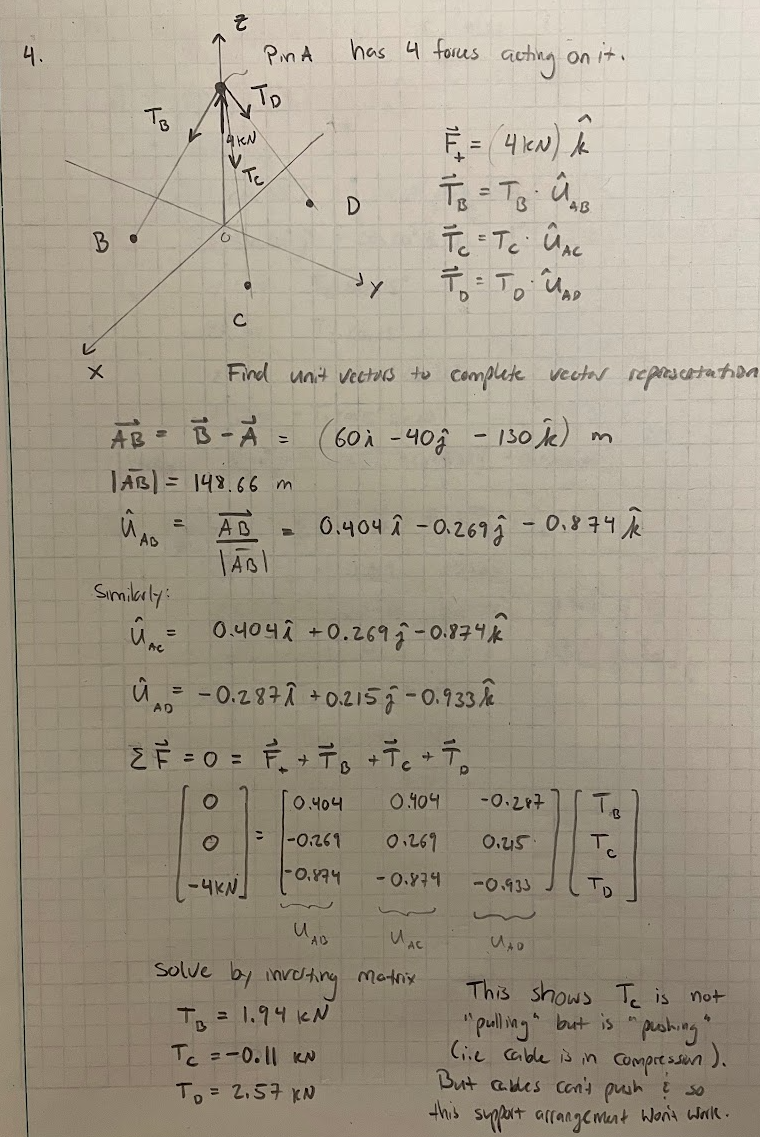 4.
Z
Pin A has 4 forces acting on it.
T_D
T_B
4KN
T_C
D
B
O
C
Y
X
F⃗₊ = (4KN) k̂
T⃗_B = T_B · û_AB
T⃗_C = T_C · û_AC
T⃗_D = T_D · û_AD
Find unit vectors to complete vector representation
A⃗B = B⃗ - A⃗ = (60î - 40ĵ - 130k̂) m
|AB| = 148.66 m
û_AB = A⃗B / |AB| = 0.404î - 0.269ĵ - 0.874k̂
Similarly:
û_AC = 0.404î + 0.269ĵ - 0.874k̂
û_AD = -0.287î + 0.215ĵ - 0.933k̂
ΣF⃗ = 0 = F⃗₊ + T⃗_B + T⃗_C + T⃗_D
[0] = [0.404 0.404 -0.287] [T_B]
[0] [-0.269 0.269 0.215] [T_C]
[-4KN] [-0.874 -0.874 -0.933] [T_D]
U_AB U_AC U_AD
Solve by inverting matrix
T_B = 1.94 KN
T_C = -0.11 KN
T_D = 2.57 KN
This shows T_C is not
"pulling" but is "pushing"
(i.e cable is in compression).
But cables can't push & so
this support arrangement won't work.